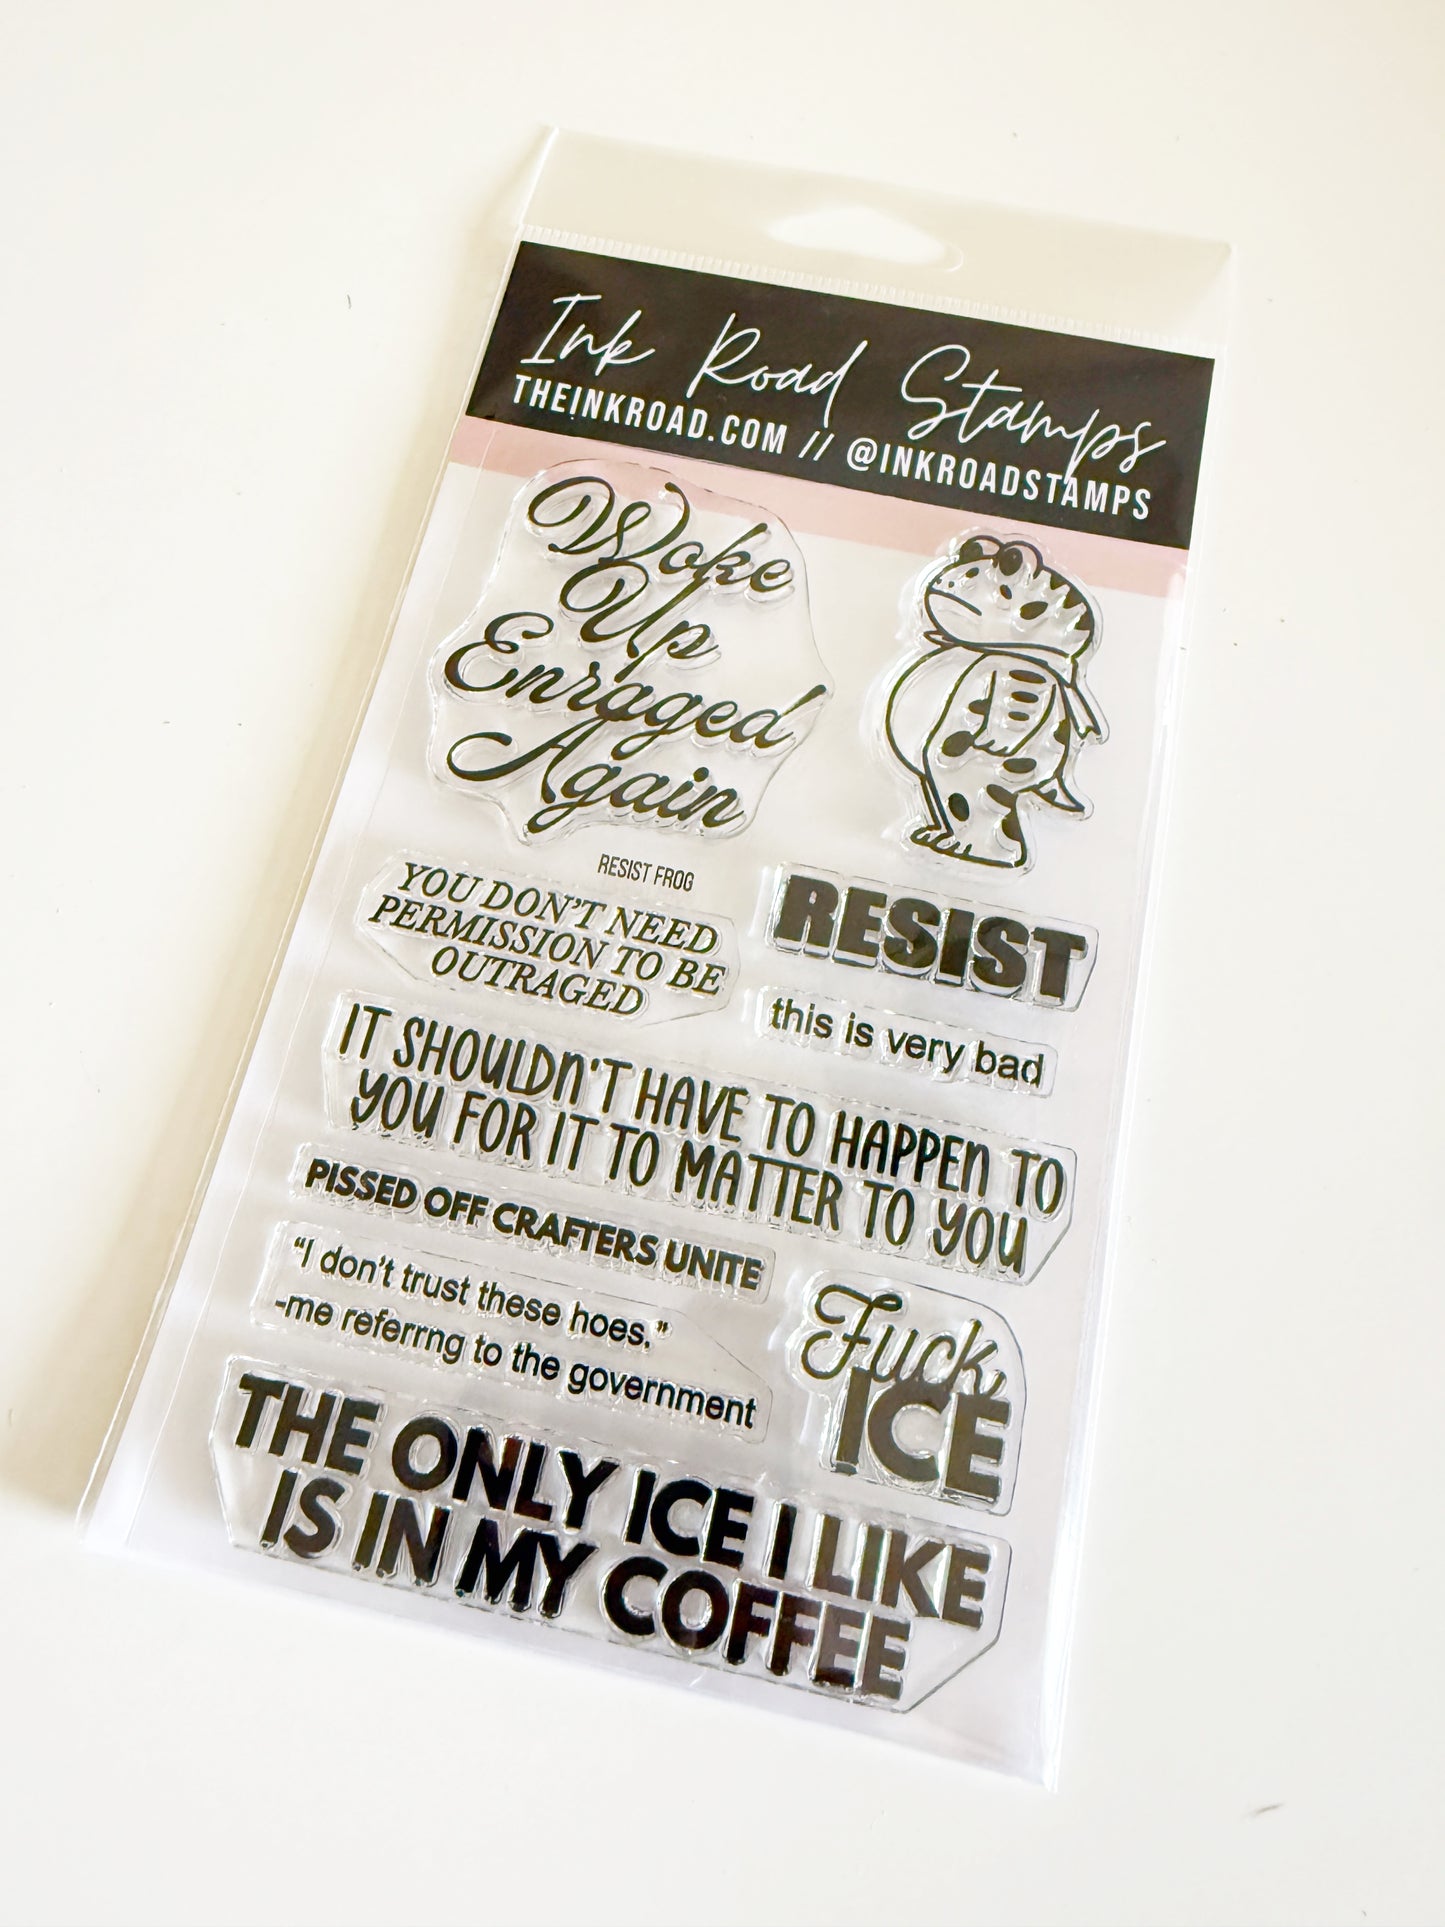 Ink Road Stamps
THEINKROAD.COM // @INKROADSTAMPS
Woke
Up
Enraged
Again
RESIST FROG
YOU DON'T NEED
PERMISSION TO BE
OUTRAGED
RESIST
this is very bad
IT SHOULDN'T HAVE TO HAPPEN TO
YOU FOR IT TO MATTER TO YOU
PISSED OFF CRAFTERS UNITE
“I don’t trust these hoes.”
-me referrng to the government
Fuck
ICE
THE ONLY ICE I LIKE
IS IN MY COFFEE